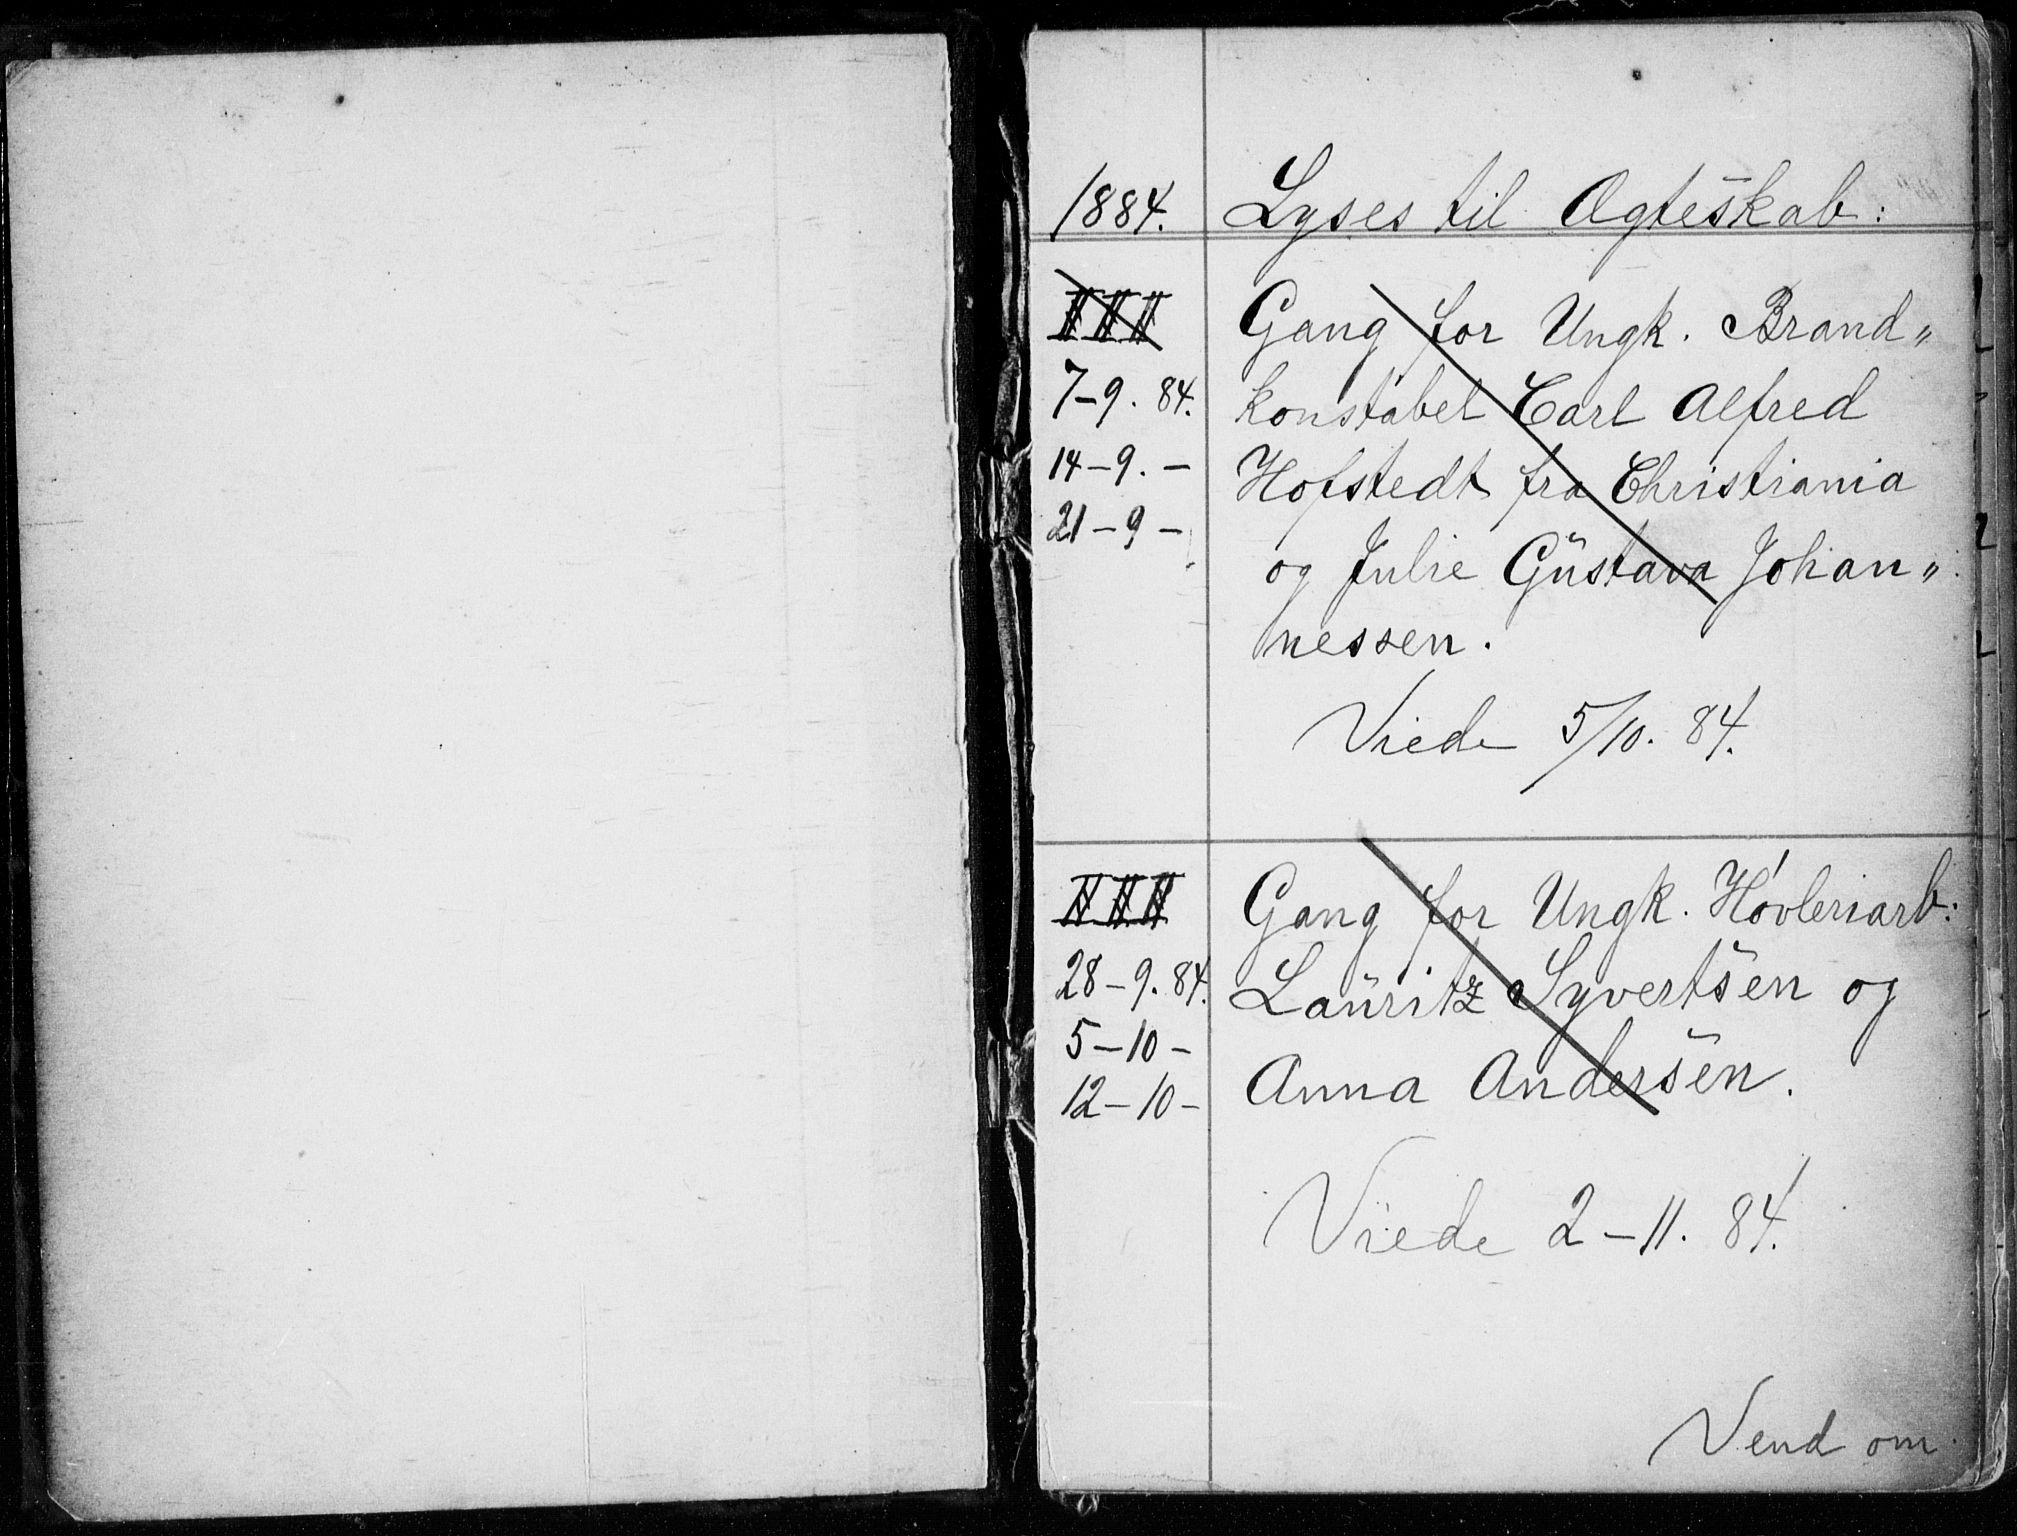 1884. Lyses til Ægteskab:
III Gang for Ungk. Brand„
7–9. 84. konstabel Carl Alfred
14–9. – Hofstedt fra Christiania
21–9 – og Julie Gustava Johan„
nessen.
Viede 5/10. 84.
III Gang for Ungk. Høvleriarb:
28–9. 84. Lauritz Syvertsen og
5–10 –
12–10 – Anna Andersen.
Viede 2–11. 84.
Vend om